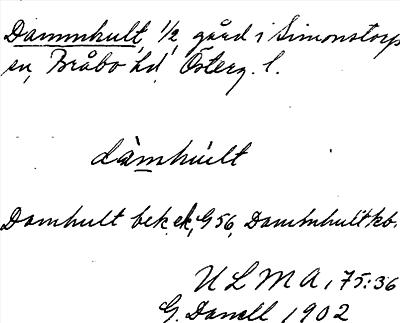 Dammhult, 1/2 gård i Simonstorps
sn, Bråbo hd, Österg. l.
dàmhúlt
Damhult bek. ek, G 56, Dammhult kb.
ULMA, 75:36
G. Danell 1902